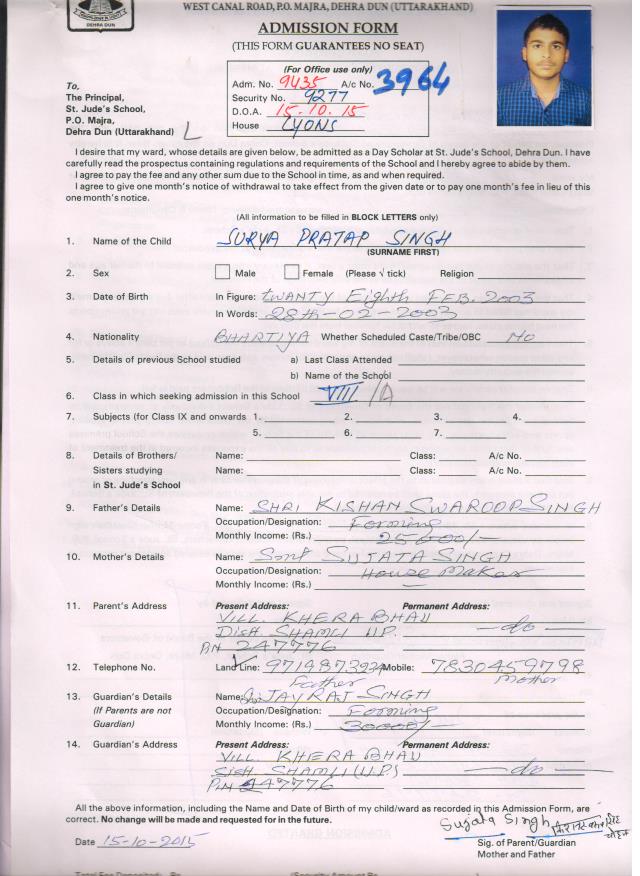 DEHRA DUN
WEST CANAL ROAD, P.O. MAJRA, DEHRA DUN (UTTARAKHAND)
ADMISSION FORM
(THIS FORM GUARANTEES NO SEAT)
(For Office use only)
Adm. No. 9435 A/c No. 3964
Security No. 9277
D.O.A. 15.10.15
House LYONS
To,
The Principal,
St. Jude's School,
P.O. Majra,
Dehra Dun (Uttarakhand)
I desire that my ward, whose details are given below, be admitted as a Day Scholar at St. Jude's School, Dehra Dun. I have
carefully read the prospectus containing regulations and requirements of the School and I hereby agree to abide by them.
I agree to pay the fee and any other sum due to the School in time, as and when required.
I agree to give one month's notice of withdrawal to take effect from the given date or to pay one month's fee in lieu of this
one month's notice.
(All information to be filled in BLOCK LETTERS only)
1. Name of the Child SURYA PRATAP SINGH
(SURNAME FIRST)
2. Sex Male Female (Please √ tick) Religion
3. Date of Birth In Figure: TWANTY Eighth FEB. 2003
In Words: 28th-02-2003
4. Nationality BHARTIYA Whether Scheduled Caste/Tribe/OBC NO
5. Details of previous School studied a) Last Class Attended
b) Name of the School
6. Class in which seeking admission in this School VIII /A
7. Subjects (for Class IX and onwards 1. 2. 3. 4.
5. 6. 7.
8. Details of Brothers/ Name: Class: A/c No.
Sisters studying Name: Class: A/c No.
in St. Jude's School
9. Father's Details Name: SHRI KISHAN SWAROOP SINGH
Occupation/Designation: Forming
Monthly Income: (Rs.) 25000/-
10. Mother's Details Name: Smt SUJATA SINGH
Occupation/Designation: House Maker
Monthly Income: (Rs.) —
11. Parent's Address Present Address: Permanent Address:
VILL. KHERA BHAU
Distt. SHAMLI U.P. —do—
PIN 247776
12. Telephone No. Land Line: 9719873934 Mobile: 7830459798
Father Mother
13. Guardian's Details Name: JAY RAJ SINGH
(If Parents are not Occupation/Designation: Forming
Guardian) Monthly Income: (Rs.) 30000/-
14. Guardian's Address Present Address: Permanent Address:
VILL. KHERA BHAU
Distt. SHAMLI (U.P.) —do—
PIN 247776
All the above information, including the Name and Date of Birth of my child/ward as recorded in this Admission Form, are
correct. No change will be made and requested for in the future.
Sujata Singh
Date 15-10-2015 Sig. of Parent/Guardian
Mother and Father